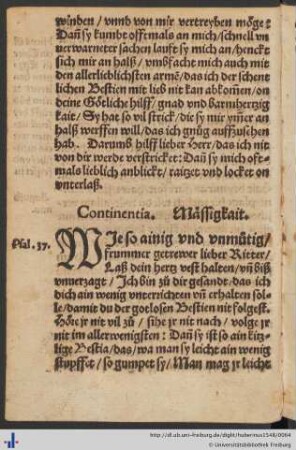 winden / vnnd von mir vertreyben möge:
Dañ sy kumbt offtmals an mich / schnell vn
uerwarneter sachen laufft sy mich an / henckt
sich mir an halß / vmbfacht mich auch mit
den allerlieblichsten armẽ / das ich der schent
lichen Bestien mit lieb nit kan abkom̃en / on
deine Götliche hilff / gnad vnd barmhertzig
kait / Sy hat so vil strick / die sy mir ym̃er an
halß werffen will / das ich gnůg auffzusehen
hab. Darumb hilff lieber Herr / das ich nit
von dir werde verstricket: Dañ sy mich offt-
mals lieblich anblickt / raitzet vnd locket on
vnterlaß.
Continentia. Mässigkait.
Psal. 37.
WIe so ainig vnd vnmůtig /
frummer getrewer lieber Ritter /
Laß dein hertz vest halten / vñ biß
vnuerzagt / Ich bin zů dir gesandt / das ich
dich ain wenig vnterrichten vñ erhalten söl-
le / damit du der gotlosen Bestien nit folgest.
Höre jr nit vil zů / sihe jr nit nach / volge jr
nit im allerwenigsten: Dañ sy ist so ain kitz-
lige Bestia / das / wa man sy leicht ain wenig
stupffet / so gumpet sy / Man mag jr leicht
http://dl.ub.uni-freiburg.de/diglit/hubernus1546/0064
© Universitätsbibliothek Freiburg